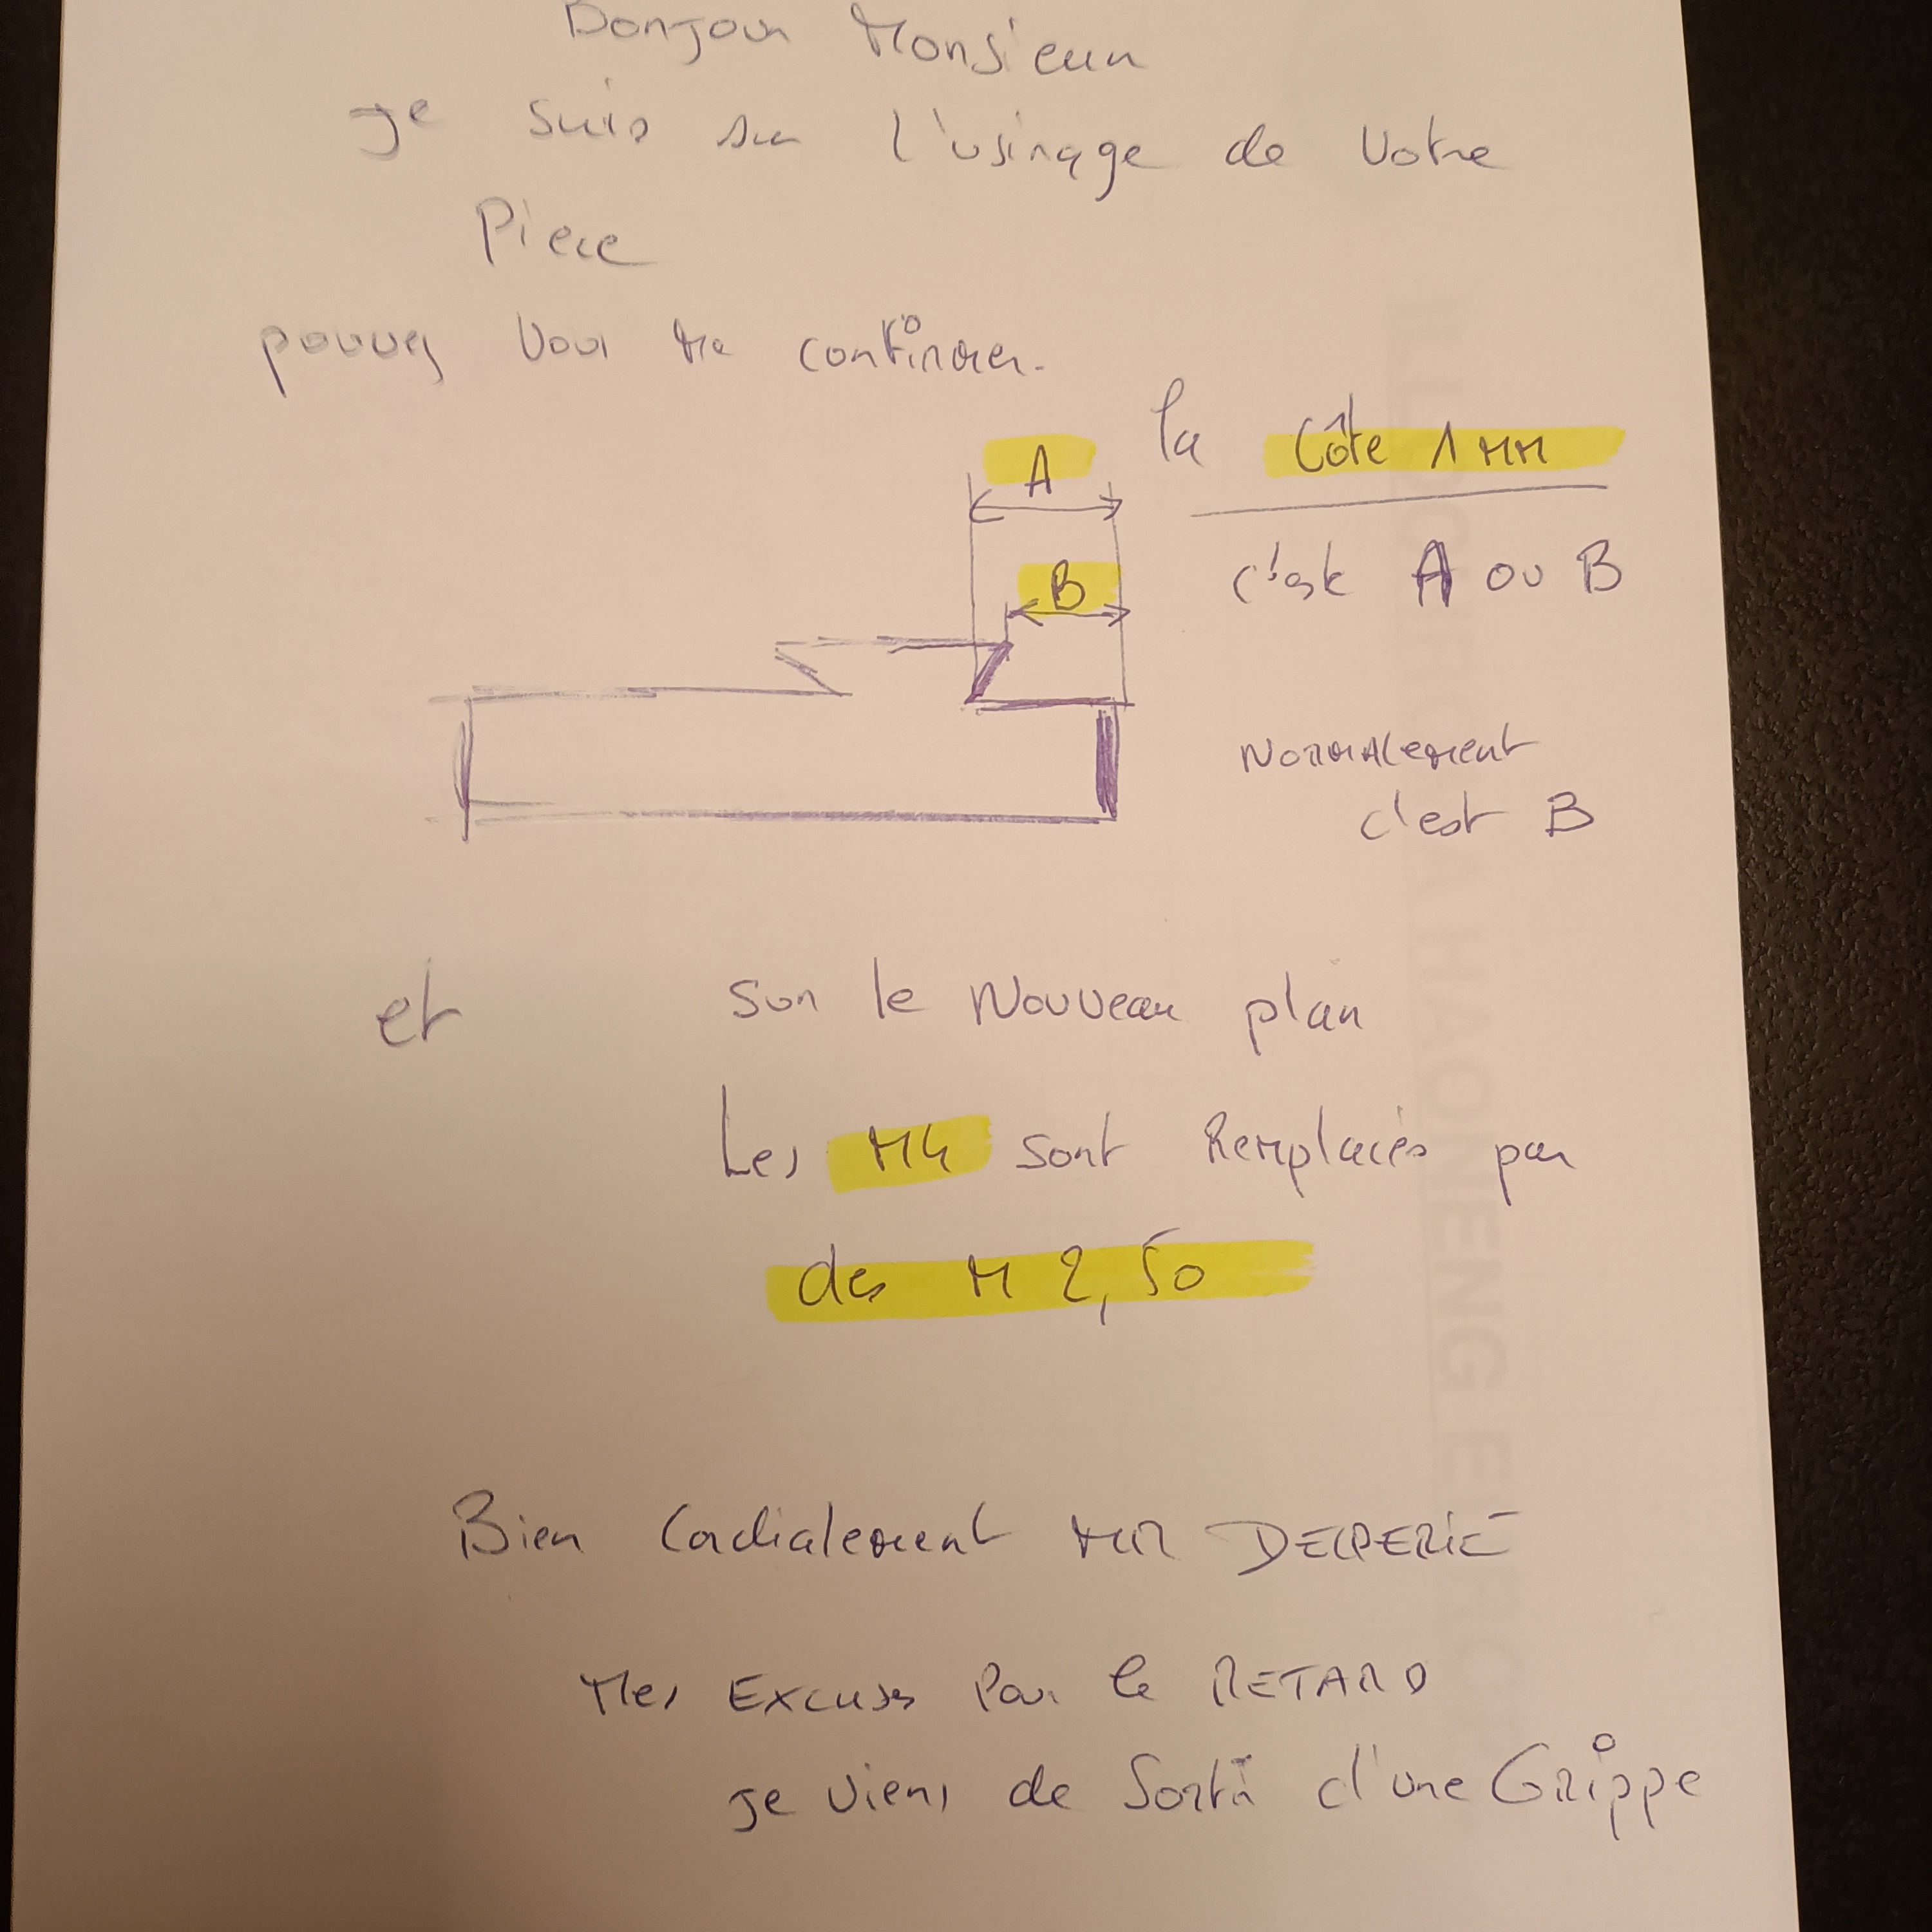 Bonjour Monsieur
Je suis sur l'usinage de Votre
Piece
pouvez Vous me confirmer.
la Côte 1 MM
A
B
c'est A ou B
NORMALement
c'est B
et sur le Nouveau plan
Les M4 sont Remplacés par
des M 2,50
Bien Cordialement MR
Mes EXCUSES Pour le RETARD
je viens de Sortir d'une GRippe